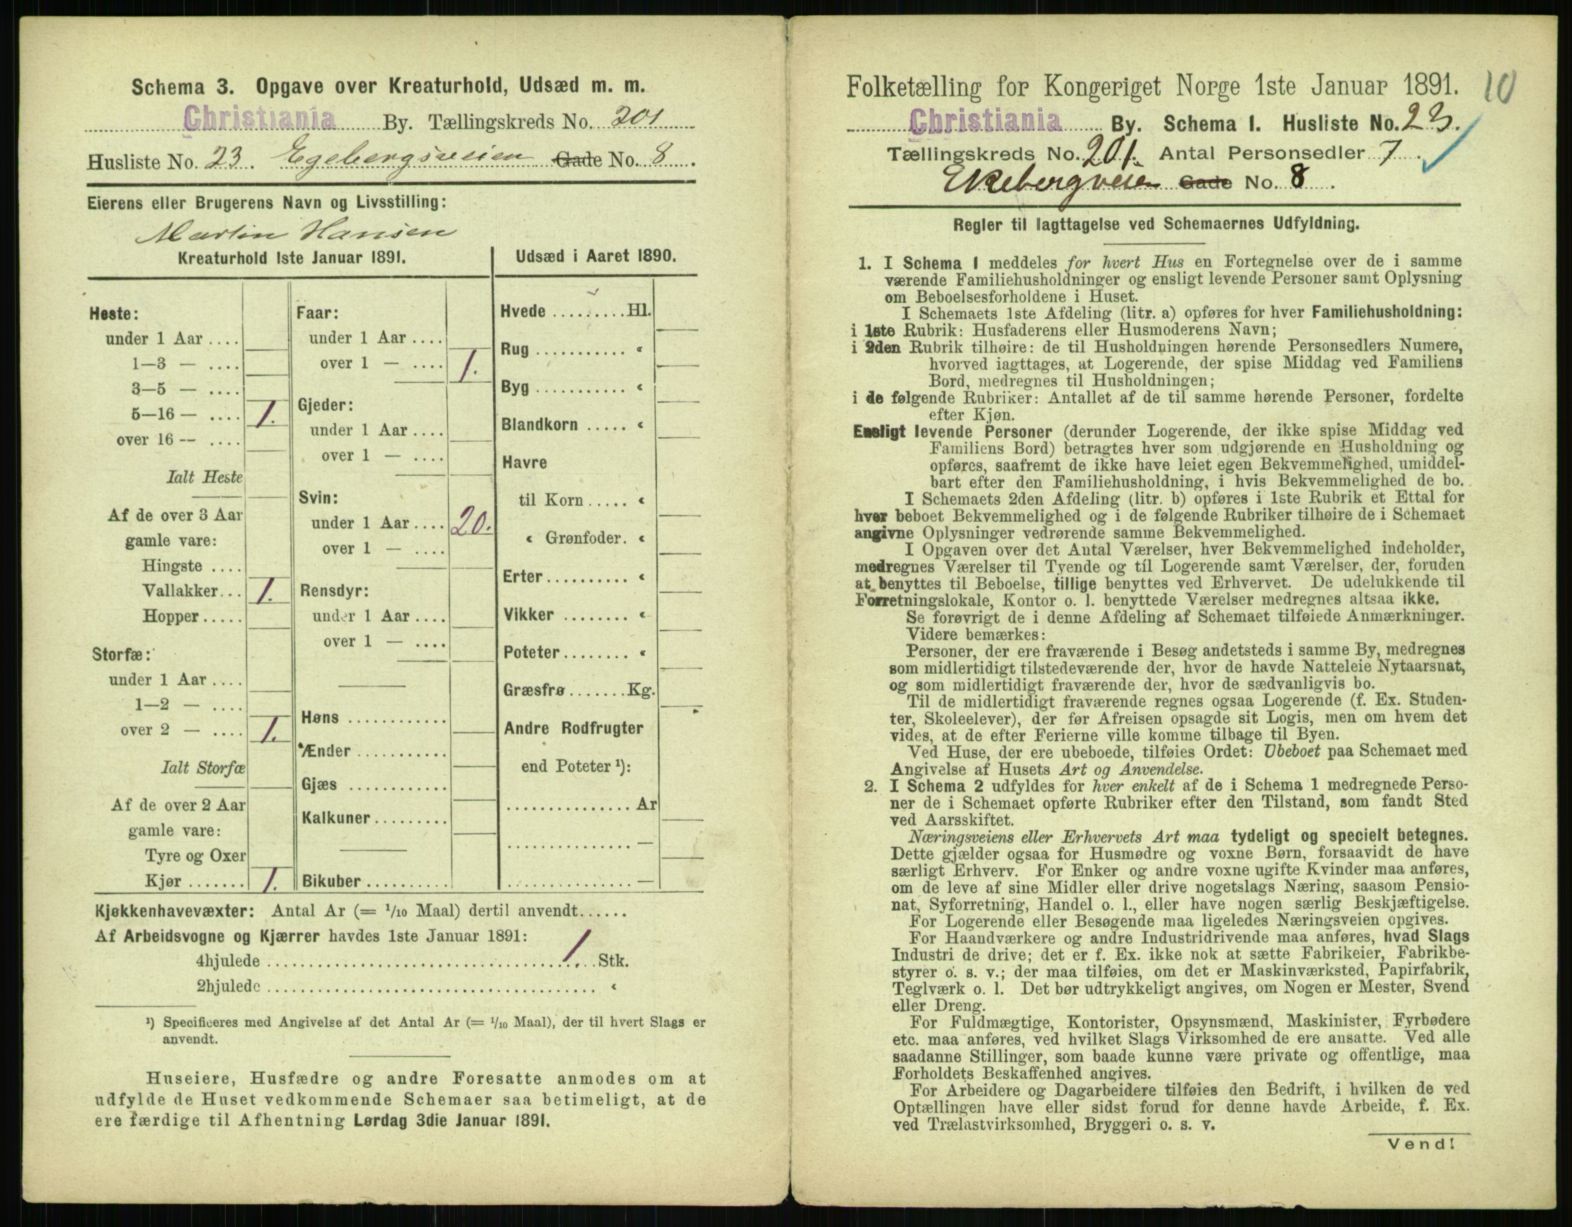 Schema 3. Opgave over Kreaturhold, Udsæd m. m.
Christiania By. Tællingskreds No. 201
Husliste No. 23. Egebergsveien Gade No. 8.
Eierens eller Brugerens Navn og Livsstilling:
Martin Hansen
Kreaturhold 1ste Januar 1891.
Heste:
under 1 Aar ....
1—3 — ....
3—5 — ....
5—16 — .... 1.
over 16 — ....
Ialt Heste
Af de over 3 Aar
gamle vare:
Hingste ....
Vallakker... 1.
Hopper.....
Storfæ:
under 1 Aar ....
1—2 — ....
over 2 — .... 1.
Ialt Storfæ
Af de over 2 Aar
gamle vare:
Tyre og Oxer
Kjør ....... 1.
Faar:
under 1 Aar ....
over 1 — .... 1.
Gjeder:
under 1 Aar ....
over 1 — ....
Svin:
under 1 Aar .... 20.
over 1 — ....
Rensdyr:
under 1 Aar ....
over 1 — ....
Høns ............
Ænder ...........
Gjæs ............
Kalkuner.........
Bikuber..........
Udsæd i Aaret 1890.
Hvede .........Hl.
Rug .......... «
Byg .......... «
Blandkorn ..... «
Havre
til Korn ..... «
« Grønfoder. «
Erter.......... «
Vikker ........ «
Poteter........ «
Græsfrø.......Kg.
Andre Rodfrugter
end Poteter ¹):
............... Ar
............... —
............... —
Kjøkkenhavevæxter: Antal Ar (= 1/10 Maal) dertil anvendt......
Af Arbeidsvogne og Kjærrer havdes 1ste Januar 1891:
4hjulede .................................... 1. Stk.
2hjulede ....................................... «
¹) Specificeres med Angivelse af det Antal Ar (= 1/10 Maal), der til hvert Slags er
anvendt.
Huseiere, Husfædre og andre Foresatte anmodes om at
udfylde de Huset vedkommende Schemaer saa betimeligt, at de
ere færdige til Afhentning Lørdag 3die Januar 1891.
Folketælling for Kongeriget Norge 1ste Januar 1891. 10
Christiania By. Schema I. Husliste No. 23.
Tællingskreds No. 201. Antal Personsedler 7.
Ekebergveien Gade No. 8.
Regler til Iagttagelse ved Schemaernes Udfyldning.
1. I Schema 1 meddeles for hvert Hus en Fortegnelse over de i samme
værende Familiehusholdninger og ensligt levende Personer samt Oplysning
om Beboelsesforholdene i Huset.
I Schemaets 1ste Afdeling (litr. a) opføres for hver Familiehusholdning:
i 1ste Rubrik: Husfaderens eller Husmoderens Navn;
i 2den Rubrik tilhøire: de til Husholdningen hørende Personsedlers Numere,
hvorved iagttages, at Logerende, der spise Middag ved Familiens
Bord, medregnes til Husholdningen;
i de følgende Rubriker: Antallet af de til samme hørende Personer, fordelte
efter Kjøn.
Ensligt levende Personer (derunder Logerende, der ikke spise Middag ved
Familiens Bord) betragtes hver som udgjørende en Husholdning og
opføres, saafremt de ikke have leiet egen Bekvemmelighed, umiddel-
bart efter den Familiehusholdning, i hvis Bekvemmelighed de bo.
I Schemaets 2den Afdeling (litr. b) opføres i 1ste Rubrik et Ettal for
hver beboet Bekvemmelighed og i de følgende Rubriker tilhøire de i Schemaet
angivne Oplysninger vedrørende samme Bekvemmelighed.
I Opgaven over det Antal Værelser, hver Bekvemmelighed indeholder,
medregnes Værelser til Tyende og til Logerende samt Værelser, der, foruden
at benyttes til Beboelse, tillige benyttes ved Erhvervet. De udelukkende til
Forretningslokale, Kontor o. l. benyttede Værelser medregnes altsaa ikke.
Se forøvrigt de i denne Afdeling af Schemaet tilføiede Anmærkninger.
Videre bemærkes:
Personer, der ere fraværende i Besøg andetsteds i samme By, medregnes
som midlertidigt tilstedeværende der, hvor de havde Natteleie Nytaarsnat,
og som midlertidigt fraværende der, hvor de sædvanligvis bo.
Til de midlertidigt fraværende regnes ogsaa Logerende (f. Ex. Studen-
ter, Skoleelever), der før Afreisen opsagde sit Logis, men om hvem det
vides, at de efter Ferierne ville komme tilbage til Byen.
Ved Huse, der ere ubeboede, tilføies Ordet: Ubeboet paa Schemaet med
Angivelse af Husets Art og Anvendelse.
2. I Schema 2 udfyldes for hver enkelt af de i Schema 1 medregnede Perso-
ner de i Schemaet opførte Rubriker efter den Tilstand, som fandt Sted
ved Aarsskiftet.
Næringsveiens eller Erhvervets Art maa tydeligt og specielt betegnes.
Dette gjælder ogsaa for Husmødre og voxne Børn, forsaavidt de have
særligt Erhverv. For Enker og andre voxne ugifte Kvinder maa anføres,
om de leve af sine Midler eller drive nogetslags Næring, saasom Pensio-
nat, Syforretning, Handel o. l., eller have nogen særlig Beskjæftigelse.
For Logerende eller Besøgende maa ligeledes Næringsveien opgives.
For Haandværkere og andre Industridrivende maa anføres, hvad Slags
Industri de drive; det er f. Ex. ikke nok at sætte Fabrikeier, Fabrikbe-
styrer o. s. v.; der maa tilføies, om det er Maskinværksted, Papirfabrik,
Teglværk o. l. Det bør udtrykkeligt angives, om Nogen er Mester, Svend
eller Dreng.
For Fuldmægtige, Kontorister, Opsynsmænd, Maskinister, Fyrbødere
etc. maa anføres, ved hvilket Slags Virksomhed de ere ansatte. Ved alle
saadanne Stillinger, som baade kunne være private og offentlige, maa
Forholdets Beskaffenhed angives.
For Arbeidere og Dagarbeidere tilføies den Bedrift, i hvilken de ved
Optællingen have eller sidst forud for denne havde Arbeide, f. Ex.
ved Trælastvirksomhed, Bryggeri o. s. v.
Vend!